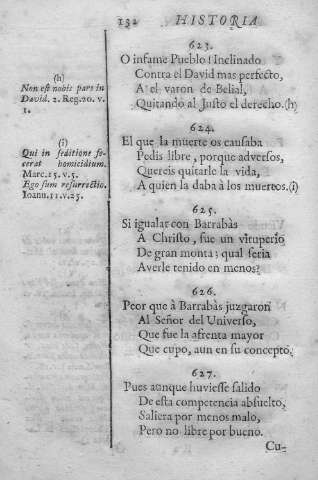 132 HISTORIA
623.
O infame Pueblo! Inclinado
Contra el David mas perfecto,
A el varon de Belial,
Quitando al Justo el derecho. (h)
(h)
Non est nobis pars in
David. 2. Reg. 20. v.
1.
624.
El que la muerte os causaba
Pedis libre, porque adversos,
Quereis quitarle la vida,
A quien la daba à los muertos. (i)
(i)
Qui in seditione fe-
cerat homicidium.
Marc. 15. v. 5.
Ego sum resurrectio.
Ioann. 11. v. 25.
625.
Si igualar con Barrabàs
A Christo, fue un vituperio
De gran monta; qual seria
Averle tenido en menos?
626.
Peor que à Barrabàs juzgaron
Al Señor del Universo,
Que fue la afrenta mayor
Que cupo, aun en su concepto.
627.
Pues aunque huviesse salido
De esta competencia absuelto,
Saliera por menos malo,
Pero no libre por bueno.
Cu-